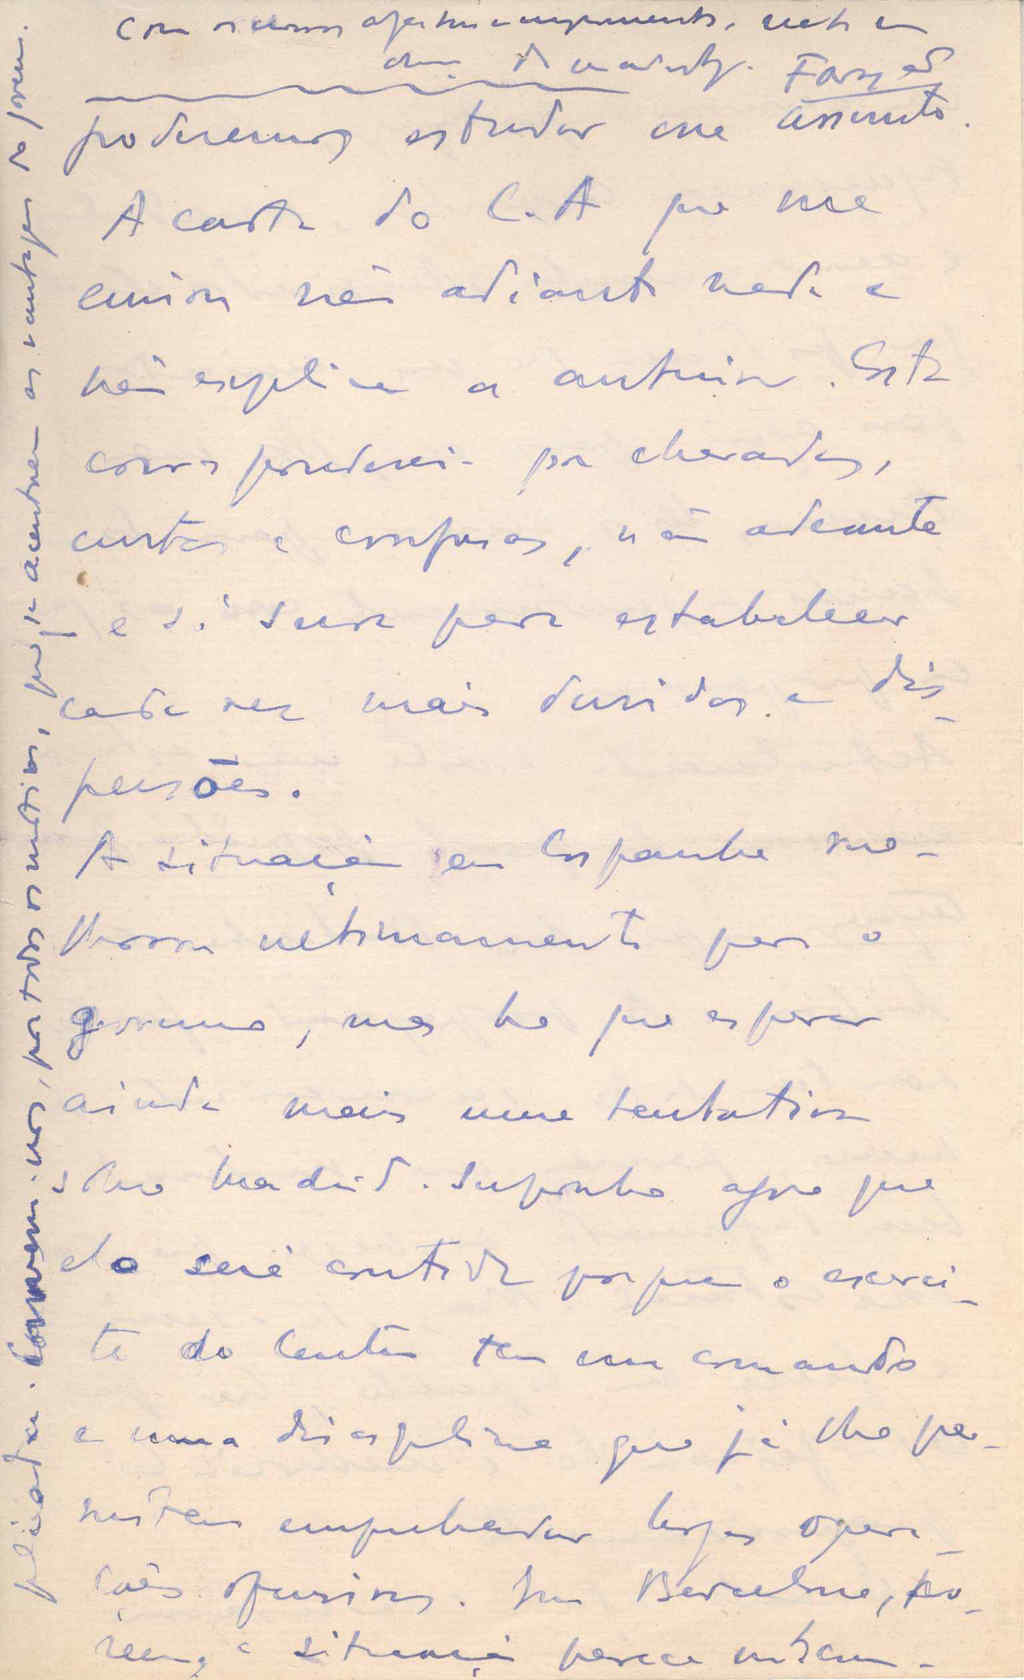 Com os nossos afectuosos cumprimentos,
poderemos estudar esse assunto.
A carta do C.A que me
enviou não adianta nada e
não explica a anterior. Esta
correspondencia por charadas,
curtas e confusas, não adeanta
e só serve para estabelecer
cada vez mais duvidas e dis-
persões.
A situação em Espanha me-
lhorou ultimamente para o
governo, mas ha que esperar
ainda mais uma tentativa
sobre Madrid. Suponho agora que
ela será contida porque o exerci-
to do Centro tem um comando
e uma disciplina que já lhe per-
mitem empreender largas opera-
ções ofensivas. Em Barcelona, po-
rem, a situação parece
plicada. Convem-nos, por todos os motivos, que se acentuem as vantagens do govern.